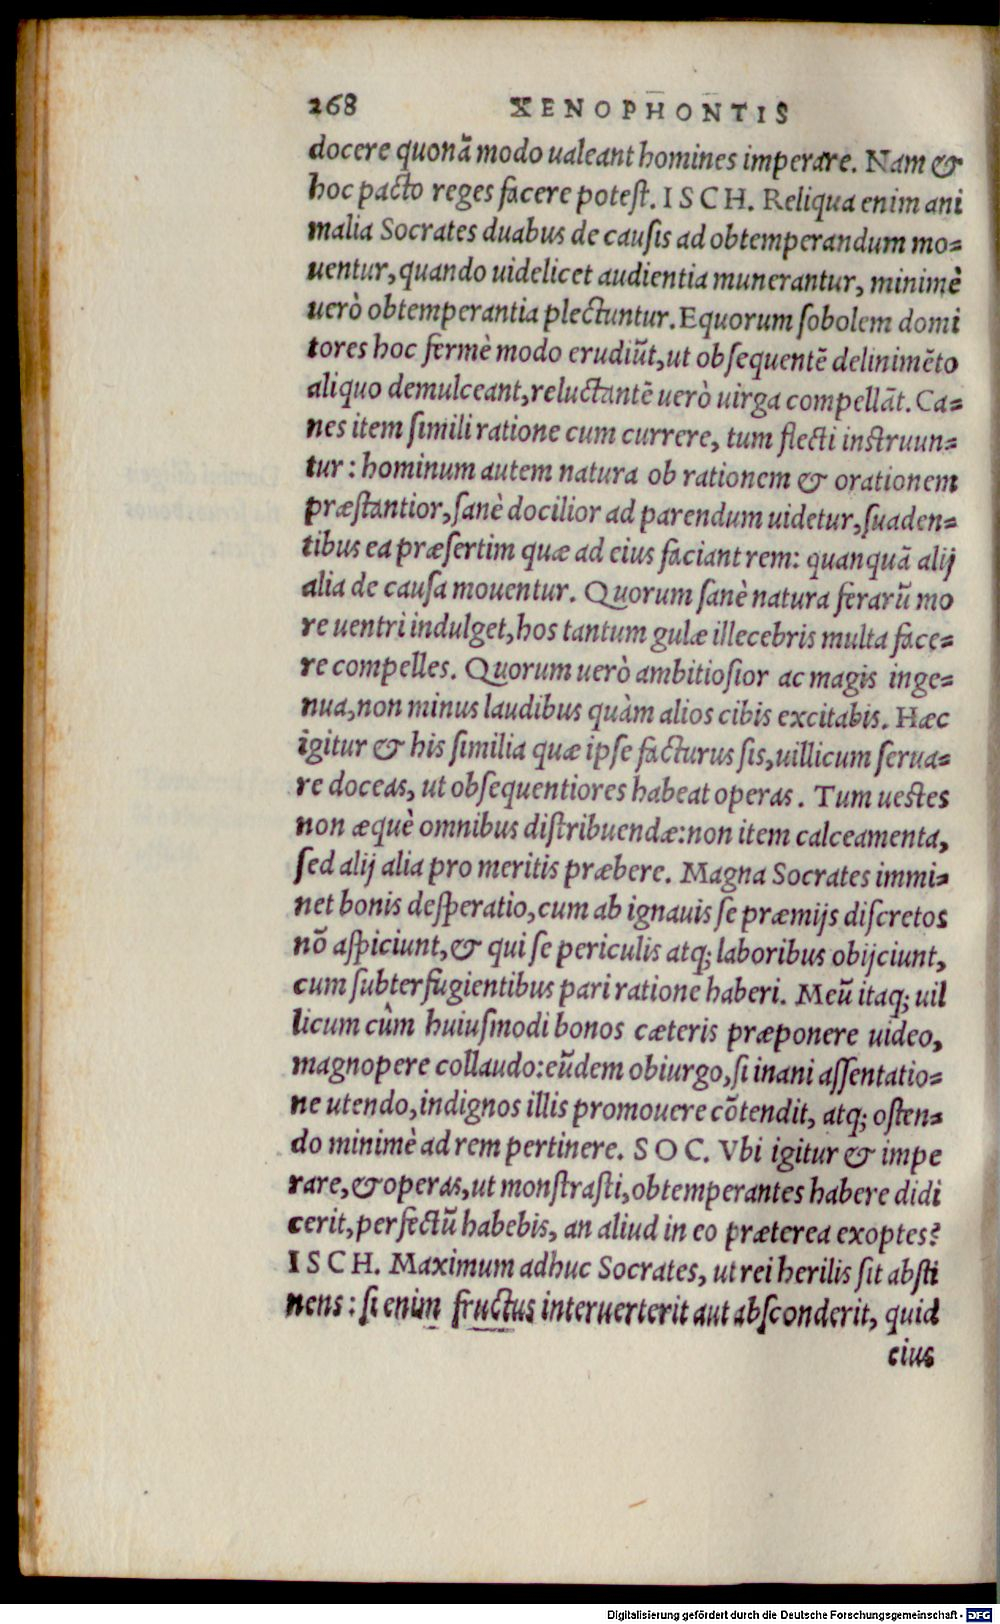 268 XENOPHONTIS
docere quonã modo ualeant homines imperare. Nam &
hoc pacto reges facere potest. ISCH. Reliqua enim ani
malia Socrates duabus de causis ad obtemperandum mo=
uentur, quando uidelicet audientia munerantur, minimè
uerò obtemperantia plectuntur. Equorum sobolem domi
tores hoc fermè modo erudiũt, ut obsequentẽ delinimẽto
aliquo demulceant, reluctantẽ uerò uirga compellãt. Ca=
nes item simili ratione cum currere, tum flecti instruun=
tur: hominum autem natura ob rationem & orationem
præstantior, sanè docilior ad parendum uidetur, suaden=
tibus ea præsertim quæ ad eius faciant rem: quanquã alij
alia de causa mouentur. Quorum sanè natura ferarũ mo
re uentri indulget, hos tantum gulæ illecebris multa face=
re compelles. Quorum uerò ambitiosior ac magis inge=
nua, non minus laudibus quàm alios cibis excitabis. Hæc
igitur & his similia quæ ipse facturus sis, uillicum serua=
re doceas, ut obsequentiores habeat operas. Tum uestes
non æquè omnibus distribuendæ: non item calceamenta,
sed alij alia pro meritis præbere. Magna Socrates immi=
net bonis desperatio, cum ab ignauis se præmijs discretos
nõ aspiciunt, & qui se periculis atq; laboribus obijciunt,
cum subterfugientibus pari ratione haberi. Meũ itaq; uil
licum cûm huiusmodi bonos cæteris præponere uideo,
magnopere collaudo: eũdem obiurgo, si inani assentatio=
ne utendo, indignos illis promouere cõtendit, atq; osten=
do minimè ad rem pertinere. SOC. Vbi igitur & impe
rare, & operas, ut monstrasti, obtemperantes habere didi
cerit, perfectũ habebis, an aliud in eo præterea exoptes?
ISCH. Maximum adhuc Socrates, ut rei herilis sit absti
nens: si enim fructus interuerterit aut absconderit, quid
eius
Digitalisierung gefördert durch die Deutsche Forschungsgemeinschaft - DFG